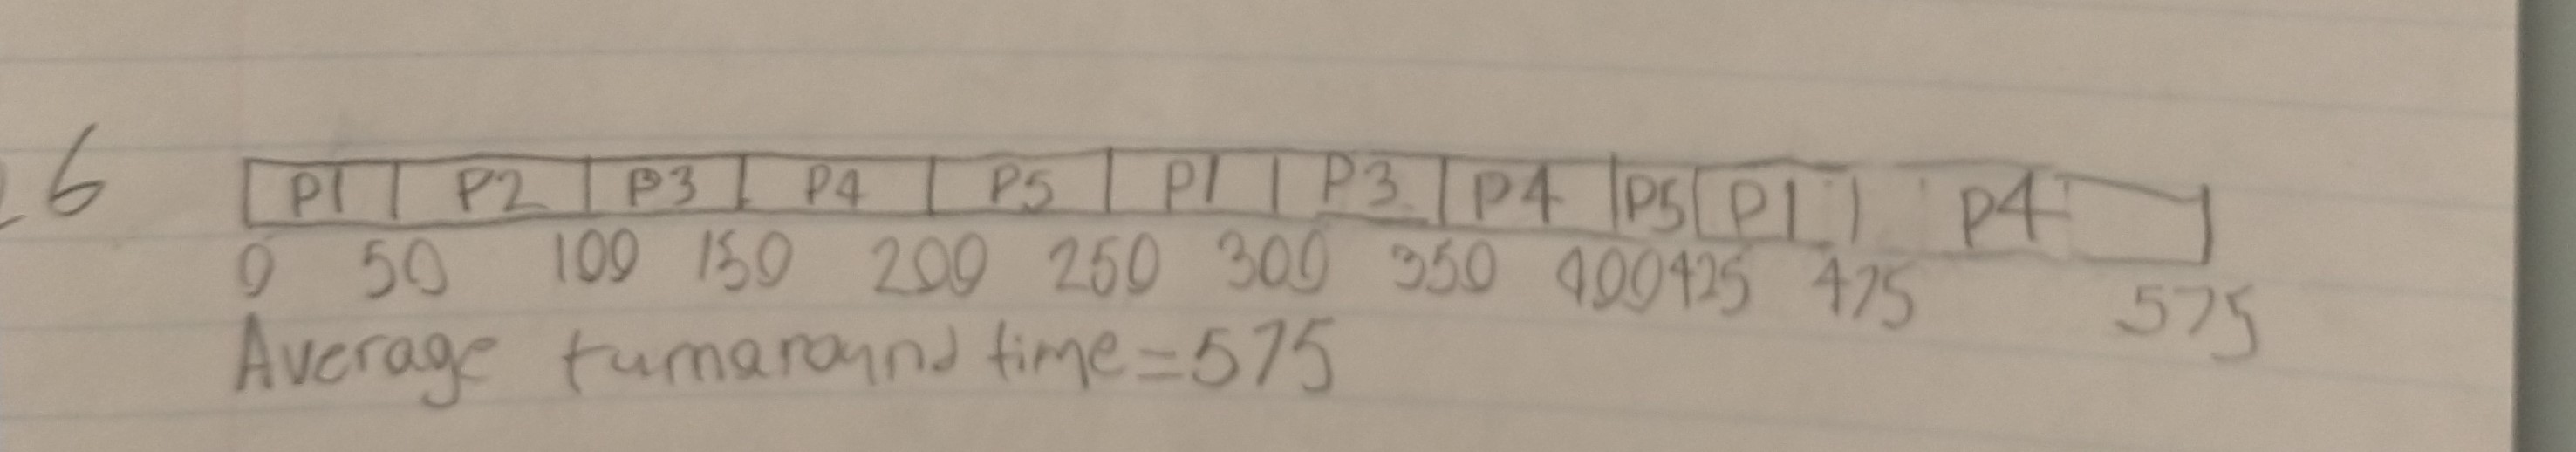 6
P1 P2 P3 P4 P5 P1 P3 P4 P5 P1 P4
0 50 100 150 200 250 300 350 400 425 475 575
Average turnaround time=575